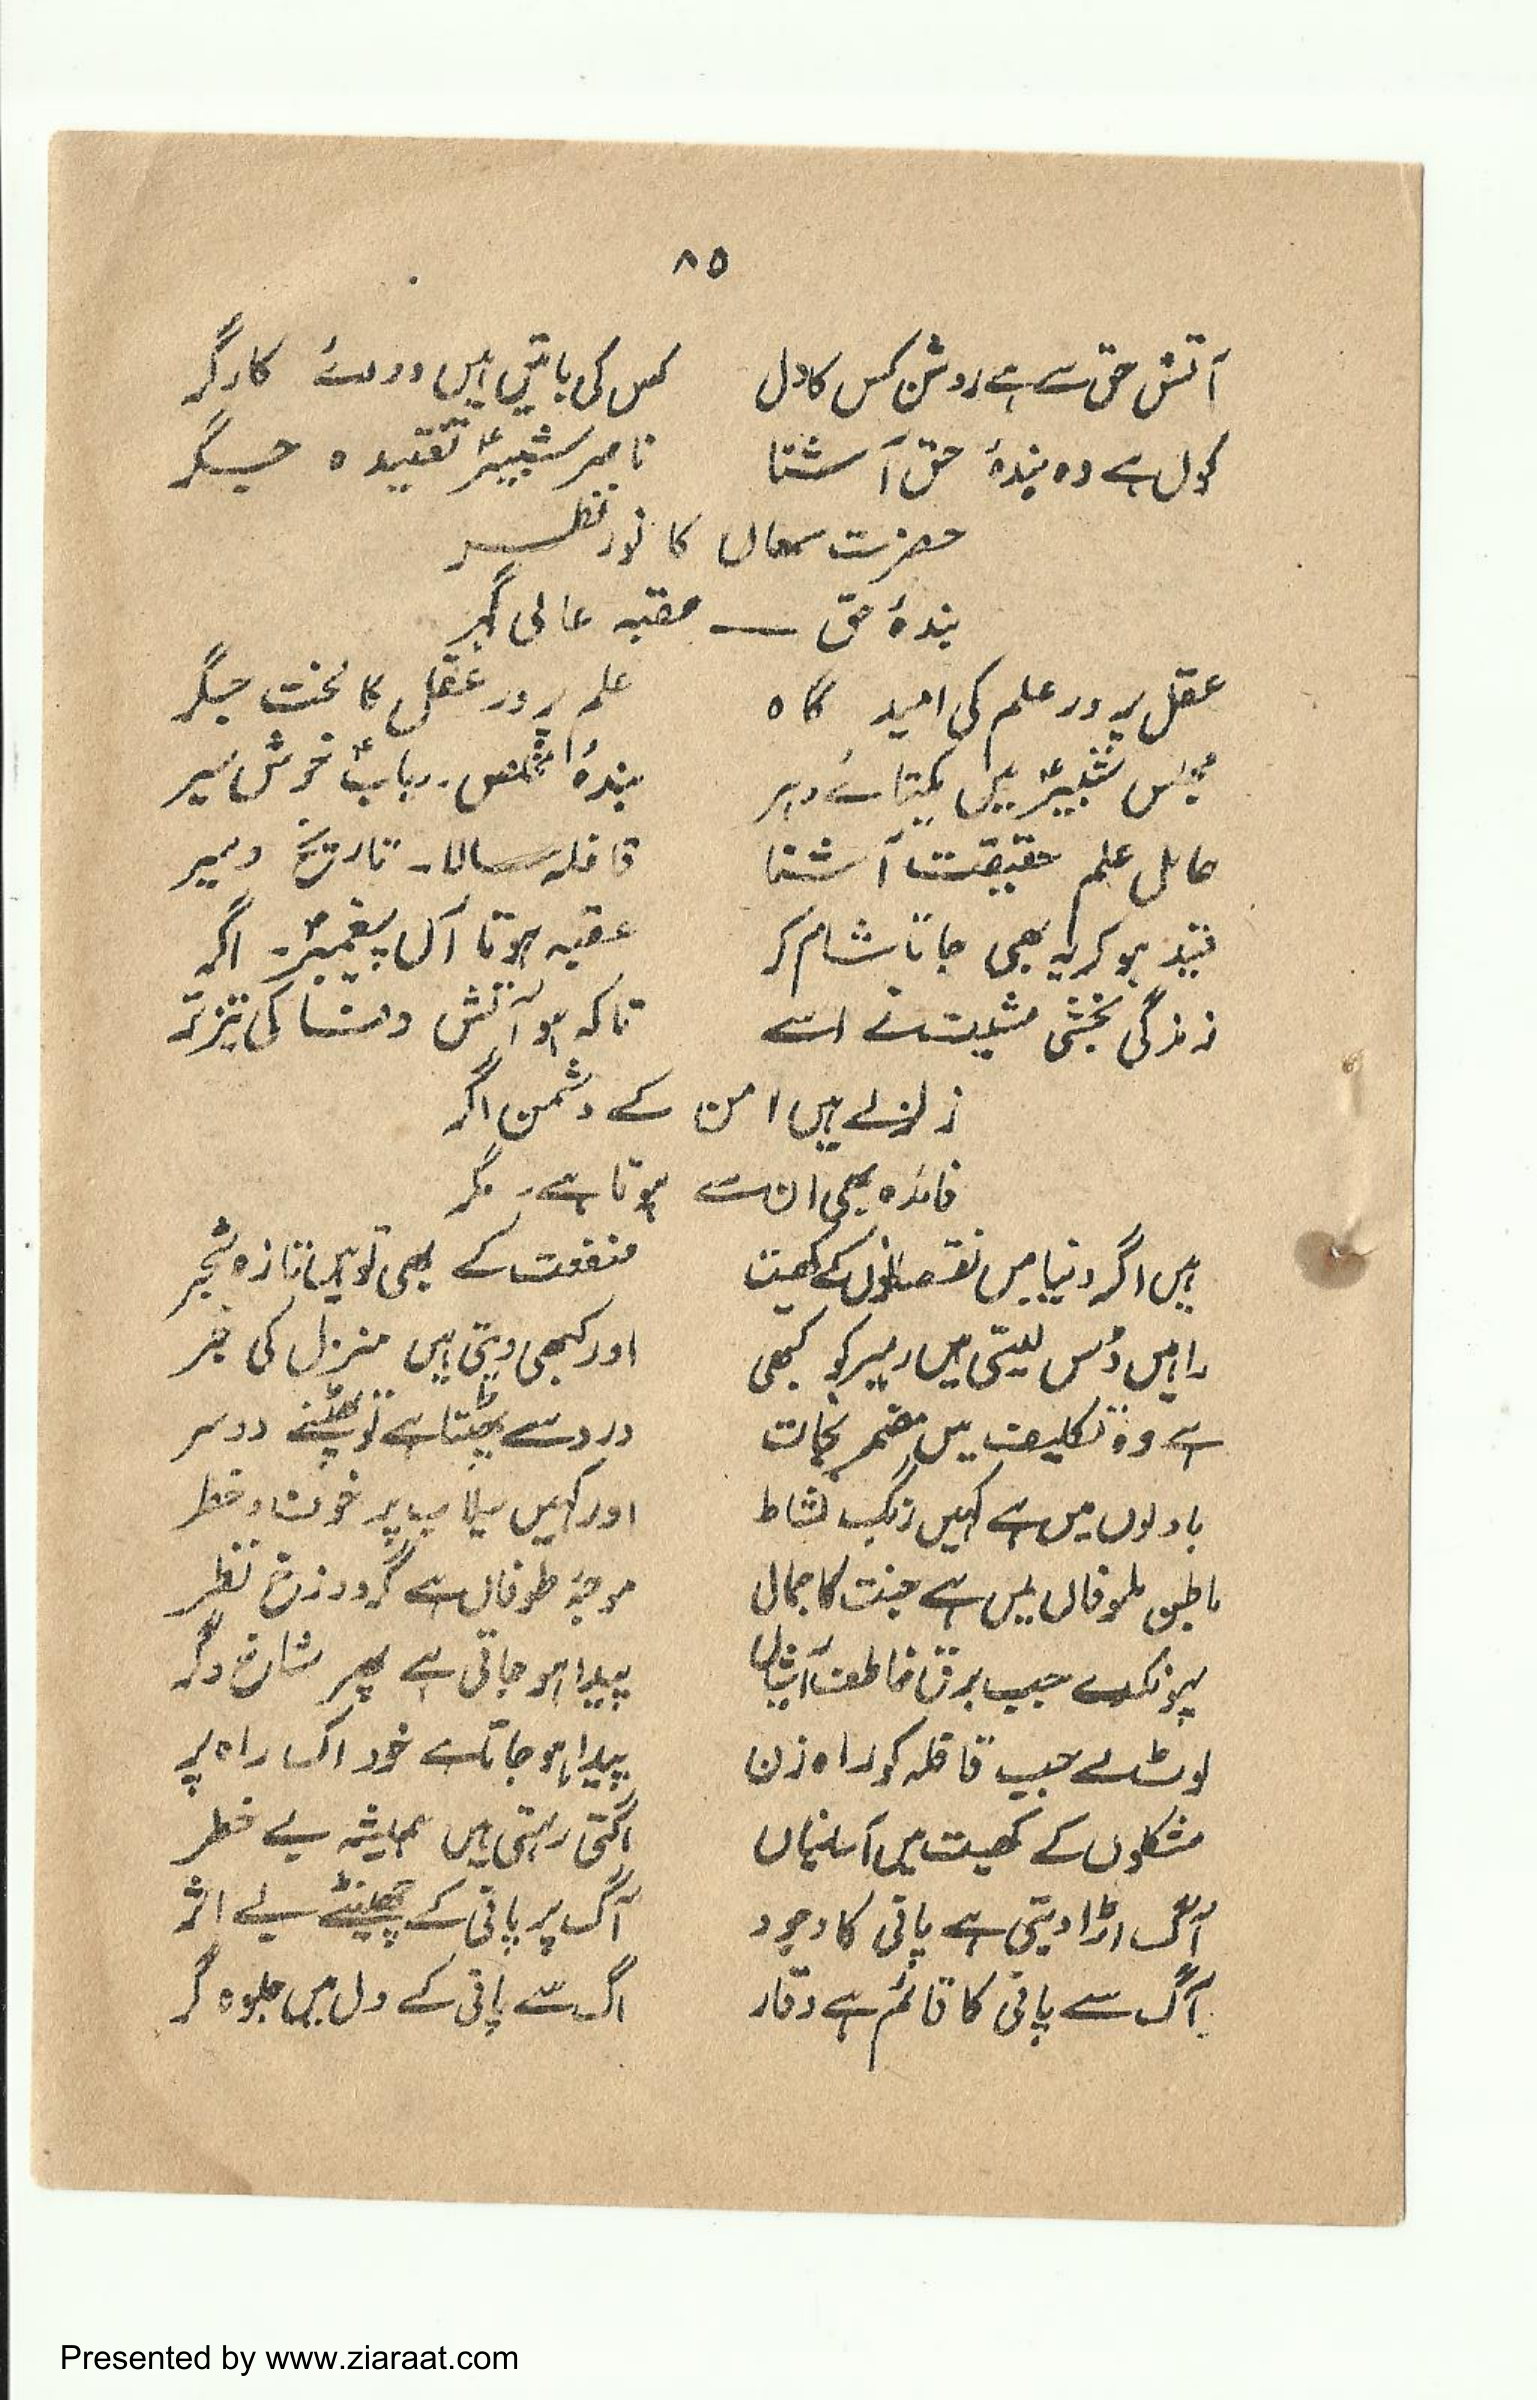 ۸۵
آتش حق سے ہے روشن کس کا دل کس کی باتیں ہیں کارگر
کون ہے وہ بندۂ حق آشنا ناصر شبیرؑ تفتیدہ جگر
حضرت سمعاں کا نور نظر
بندۂ حق — عقبہ عالی گہر
عقل پرور علم کی امید گاہ علم پرور عقل کا لخت جگر
مجلس شبیرؑ میں یکتائے دہر بندۂ مخلص۔ ربابؑ خوش سیر
حامل علم حقیقت آشنا قافلہ سالار۔ تاریخ و سیر
قید ہو کر یہ بھی جاتا شام کو عقبہ ہوتا آل پیغمبرؐ۔ اگر
زندگی بخشی مشیت نے اسے تاکہ ہو آتش وفا کی تیز تر
زلزلے ہیں امن کے دشمن اگر
فائدہ بھی ان سے ہوتا ہے۔ مگر
ہیں اگر دنیا میں نقصانوں کے کھیت منفعت کے بھی تو ہیں تازہ شجر
راہیں ڈس لیتی ہیں رہبر کو کبھی اور کبھی دیتی ہیں منزل کی خبر
ہے وہ تکلیف میں مضمر نجات درد سے پھٹتا ہے تو پھٹنے دو سر
بادلوں میں ہے کہیں رنگ نشاط اور کہیں سیلاب پر خوف و خطر
باطن طوفاں میں ہے جنت کا جمال موجۂ طوفاں ہے گرد و زن نظر
پھونکدے جب برق خاطف آشیاں پیدا ہو جاتی ہے پھر شان دگر
لوٹ لے جب قافلہ کو راہ زن پیدا ہو جاتا ہے خود اک راہ پر
مشکلوں کے کھیت میں آسانیاں اگتی رہتی ہیں ہمیشہ بے خطر
آگ اڑا دیتی ہے پانی کا وجود آگ پر پانی کے چھینٹے بے اثر
آگ سے پانی کا قائم ہے وقار اگ سے پانی کے دل میں جلوہ گر
Presented by www.ziaraat.com